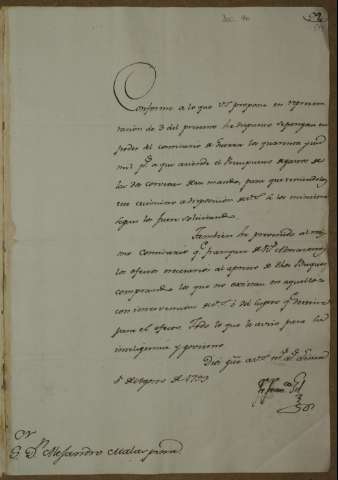 Conforme a lo que V.S. propone en represen
tacion de 3 del proximo he dispuesto se pongan en
poder del comisario de Guerra los quarenta y un
mil p.s a que asciende el Presupuesto de gastos de
las dos corvetas de su mando, para que teniendolos
en
a disposicion de V.S. los ministre
segun los fuere solicitando.
Tambien he prevenido al mis
mo Comisario q.e franquee de R.s Almacenes
los efectos necesarios al apresto de dhos Buques
comprando los que no existan en aquellos
con intervencion de V.S. ó del sugeto q.e destine
para el efecto. Todo lo que le aviso para su
inteligencia y govierno.
Dios gue a V.S. m.s a.s
5 de Agosto de 1793
S.or D.n Alexandro Malaspina.